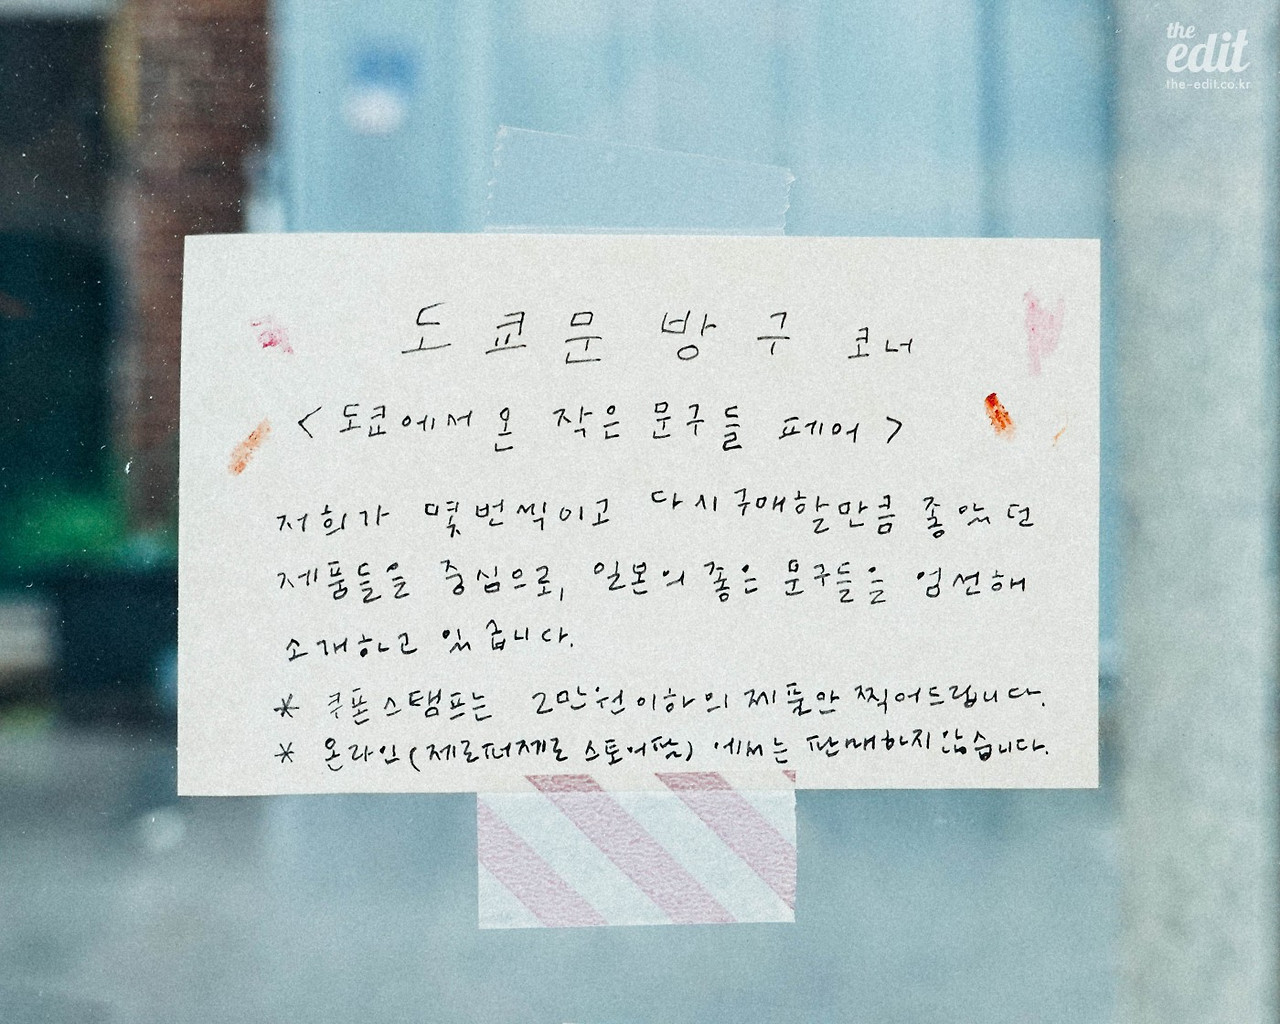 the
edit
the-edit.co.kr
도쿄문방구 코너
<도쿄에서 온 작은 문구들 페어>
저희가 몇번씩이고 다시 구매할만큼 좋았던
제품들을 중심으로, 일본의 좋은 문구들을 엄선해
소개하고 있습니다.
* 쿠폰스탬프는 2만원이하의 제품만 찍어드립니다.
* 온라인(제로퍼제로 스토어팜)에서는 판매하지않습니다.